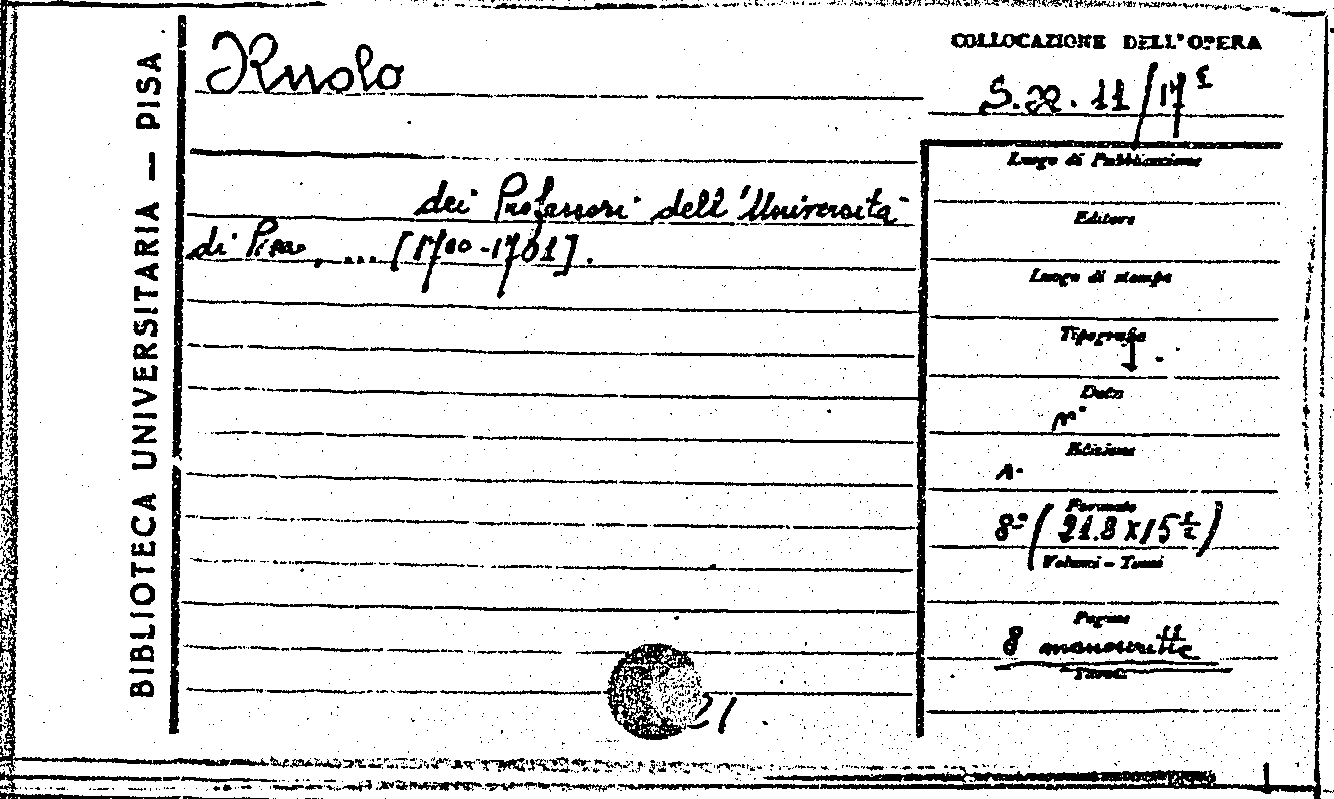 BIBLIOTECA UNIVERSITARIA — PISA
Ruolo
dei Professori dell'Università
di Pisa, ... [1700-1701].
21
COLLOCAZIONE DELL'OPERA
11/17
Luogo di Pubblicazione
Editore
Luogo di stampa
Tipografia
Data
Edizione
Formato
8° (21.8 x 15 ½)
Volumi - Tomi
Pagine
8 manoscritte
Tavole